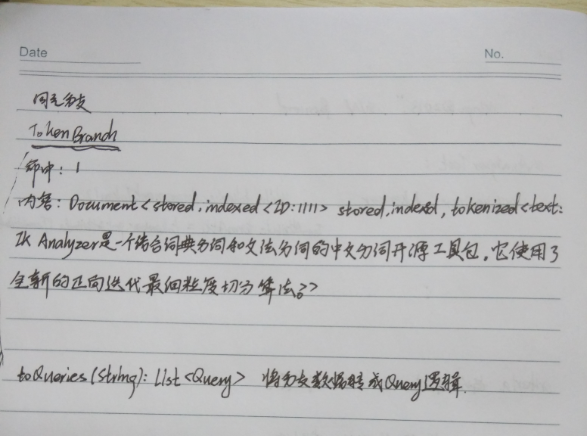 Date No.
TokenBranch
命中：1
内容：Document<stored,indexed<ID:1111> stored,indexed,tokenized<text:
IK Analyzer是一个结合词典分词和文法分词的中文分词开源工具包。它使用了
全新的正向迭代最细粒度切分算法。>>
toQueries(String): List<Query> 将分支数据转成Query逻辑.